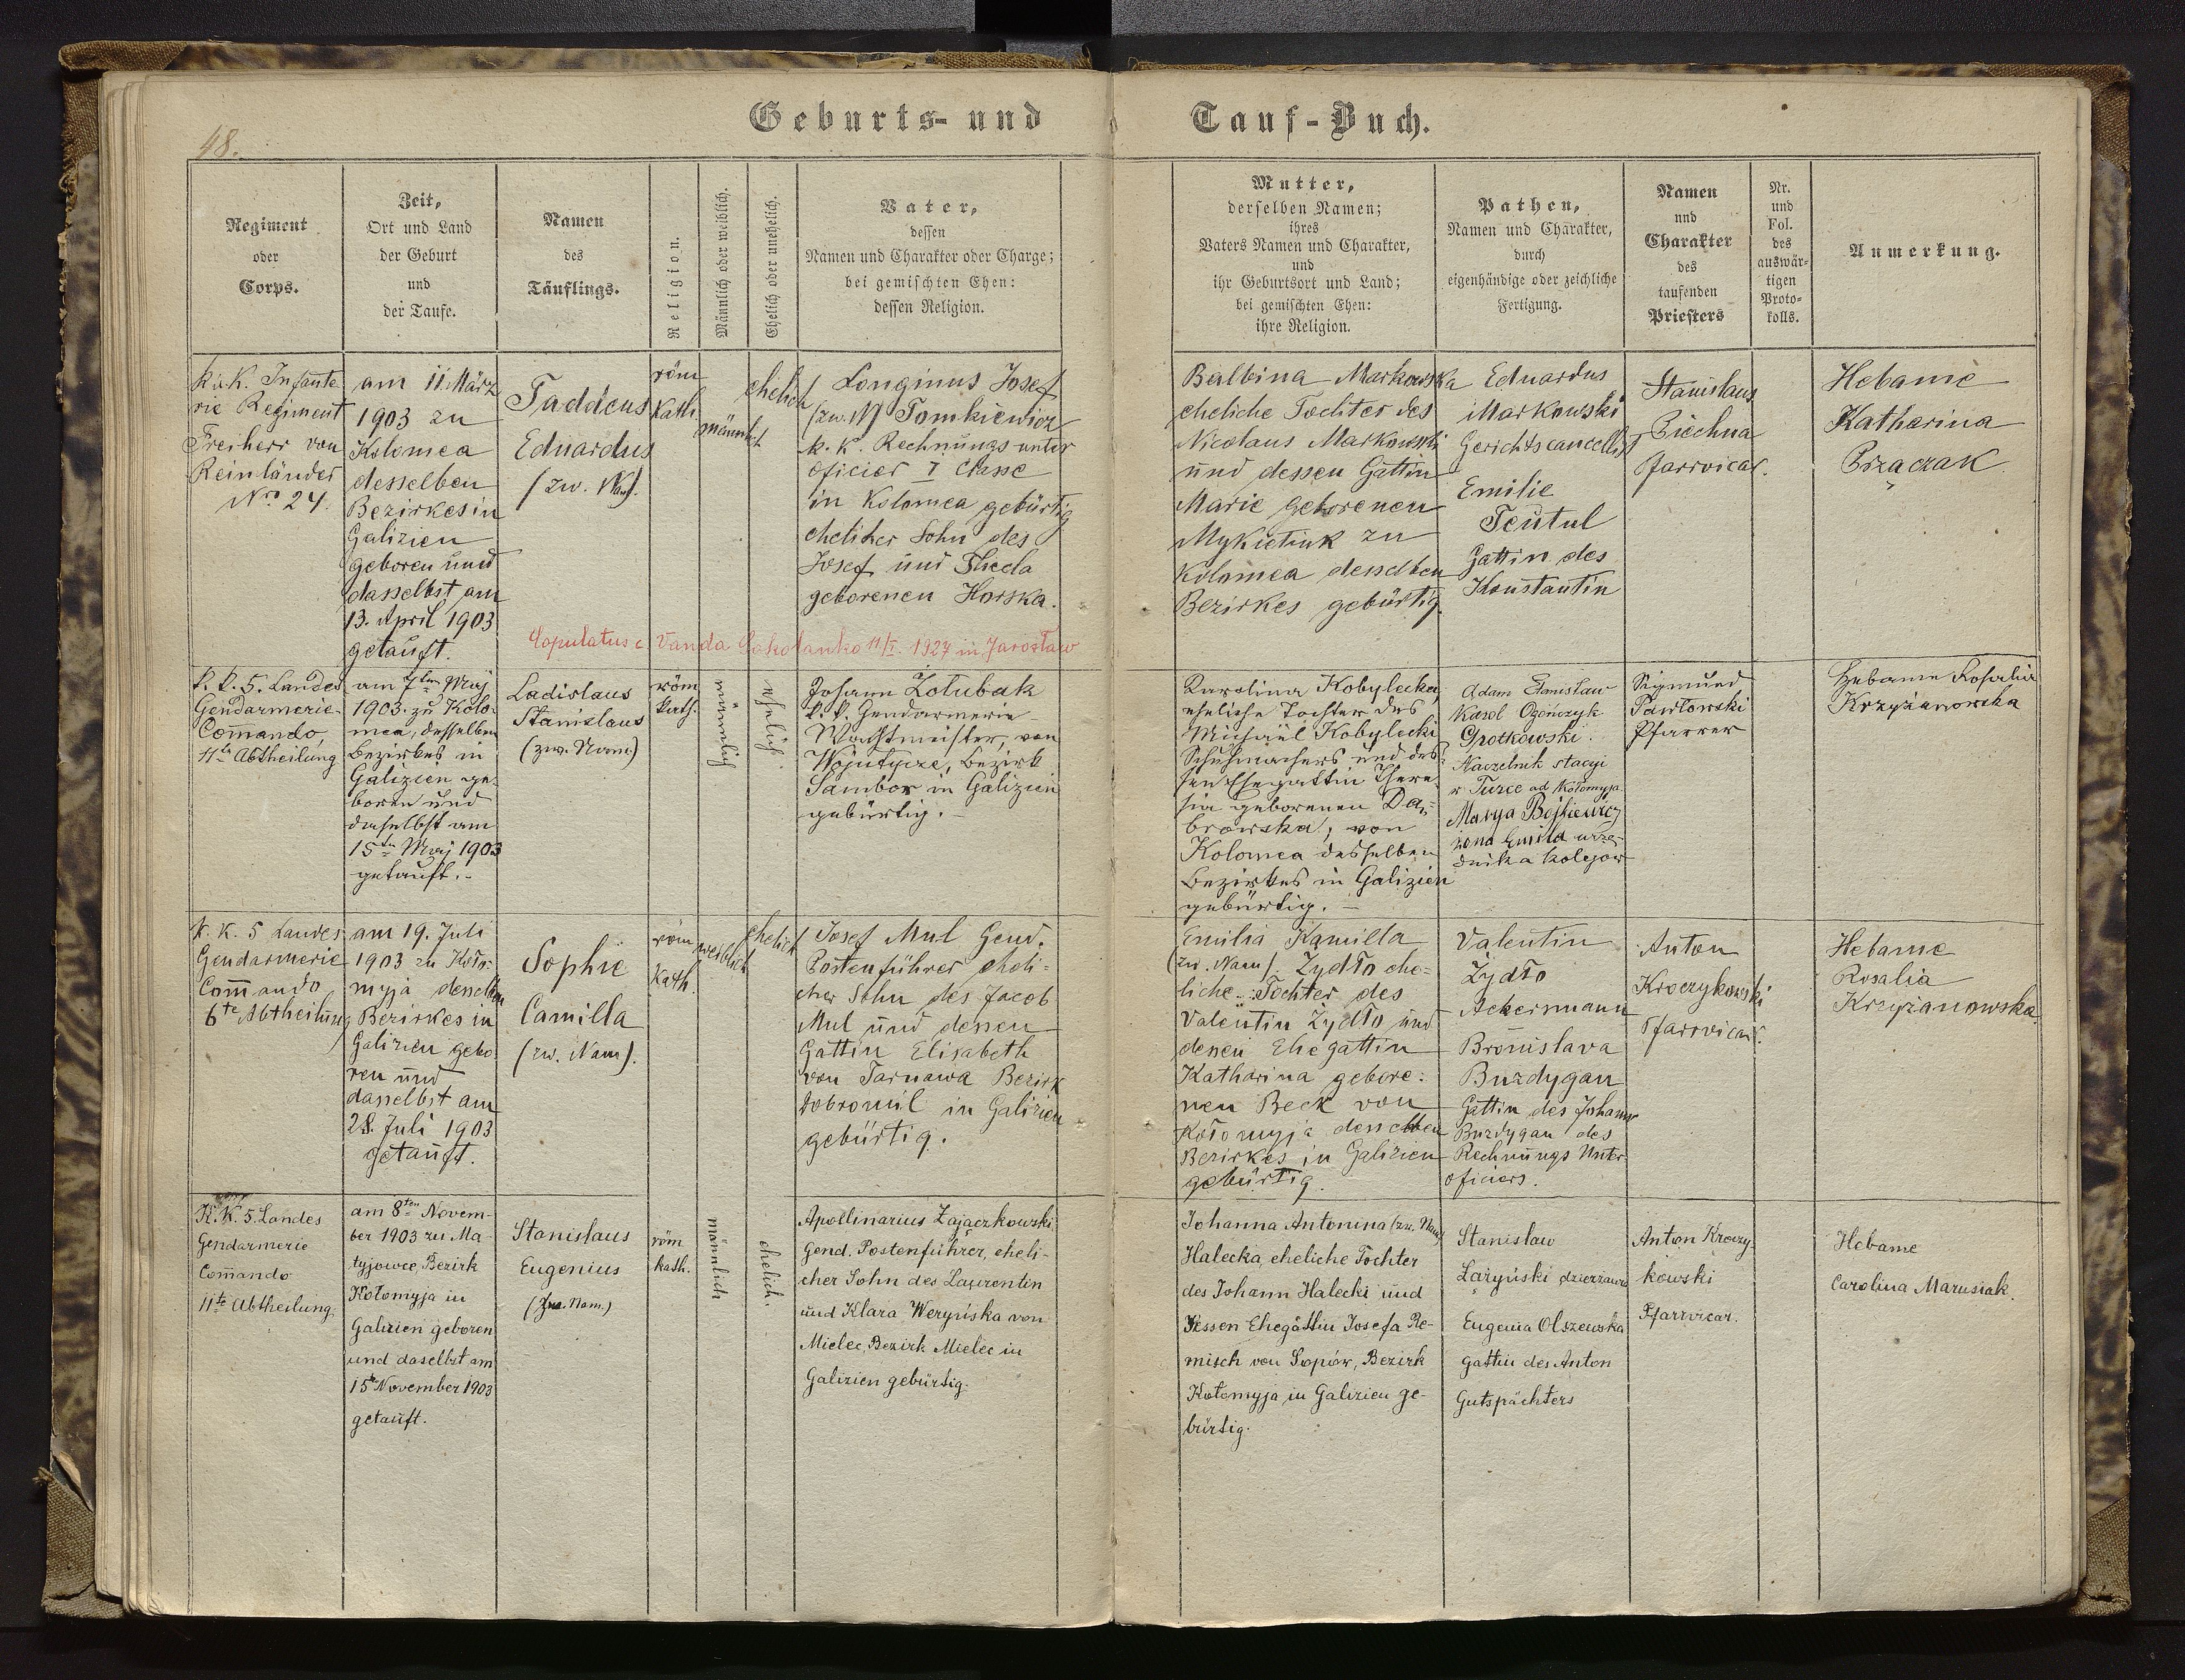 48.
Geburts- und Tauf-Buch.
Regiment
oder
Corps.
Zeit,
Ort und Land
der Geburt
und
der Taufe.
Namen
des
Täuflings.
Religion.
Männlich oder weiblich.
Ehelich oder unehelich.
Vater,
dessen
Namen und Charakter oder Charge;
bei gemischten Ehen:
dessen Religion.
Mutter,
derselben Namen;
ihres
Vaters Namen und Charakter,
und
ihr Geburtsort und Land;
bei gemischten Ehen:
ihre Religion.
Pathen,
Namen und Charakter,
durch
eigenhändige oder zeichliche
Fertigung.
Namen
und
Charakter
des
taufenden
Priesters
Nr.
und
Fol.
des
auswär-
tigen
Proto-
kolls.
Anmerkung.
K.u.K. Infante
rie Regiment
Freiherr von
Reinländer
Nro. 24.
am 11 März
1903 zu
Kolomea
desselben
Bezirkes in
Galizien
geboren und
dasselbst am
13. April 1903
getauft.
Taddeus
Eduardus
(zw. Nam).
röm
Kath
männlich
ehelich
Longinus Josef
(zw. N) Tomkiewicz
k. k. Rechnungs unter
oficier I Classe
in Kolomea gebürtig
ehelicher Sohn des
Josef und
geborenen Horska.
Copulatus c Vanda 11/I. 1927 in Jarosław
Balbina Markowska
eheliche Tochter des
Nicolaus Markowski
und dessen Gattin
Marie geborenen
Mykietiuk zu
Kolomea desselben
Bezirkes gebürtig.
Eduardus
Markowski
Gerichtscancellist
Emilie
Teutul
Gattin des
Konstantin
Stanislaus
Piechna
Pfarrvicar.
Hebame
Katharina
Przaczak
k. k. 5. Landes
Gendarmerie-
Comando
11te Abtheilung
am 7ten Maj
1903. zu Kolo-
mea, desselben
Bezirkes in
Galizien ge-
boren und
daselbst am
15ten Maj 1903
getauft.-
Ladislaus
Stanislaus
(zw. Nam)
röm
kath.
männlich
ehelich.
Johann Zołubak
k. k. Gendarmerie-
Wachtmeister, von
Wojutycze, Bezirk
Sambor in Galizien
gebürtig.-
Karolina Kobylecka,
eheliche Tochter des
Michael Kobylecki
Schuhmachers und des-
sen Ehegattin There-
sia geborenen Da-
browska, von
Kolomea desselben
Bezirkes in Galizien
gebürtig.-
Adam Stanisław
Karol Ogończyk
Grotkowski.
Naczelnik stacyi
w Turce ad Kołomyja.
Marya Bojkiewicz
żona Emila urzę-
dnika kolejow
Sigmund
Pawłowski
Pfarrer
Hebame Rosalia
Krzyżanowska
K. K. 5 Landes
Gendarmerie
Comando
6te Abtheilung
am 19. Juli
1903 zu Koło-
myja desselben
Bezirkes in
Galizien gebo-
ren und
dasselbst am
28. Juli 1903
getauft.
Sophie
Camilla
(zw. Nam).
röm
Kath.
weiblich
ehelich
Josef Mul Gend.
Postenführer eheli-
cher Sohn des Jacob
Mul und dessen
Gattin Elisabeth
von Tarnawa Bezirk
Dobromil in Galizien
gebürtig.
Emilia Kamilla
(zw. Nam) Zydło ehe-
liche Tochter des
Valentin Zydło und
dessen Ehegattin
Katharina gebore-
nen Beck von
Kołomyja desselben
Bezirkes in Galizien
gebürtig.
Valentin
Żydło
Ackermann
Bronislava
Buzdygan
Gattin des Johann
Buzdygan des
Rechnungs Unter
oficiers.
Anton
Kroczykowski
Pfarrvicar.
Hebame
Rosalia
Krzyżanowska.
K. K. 5. Landes
Gendarmerie
Comando
11te Abtheilung.
am 8ten Novem-
ber 1903 zu Ma-
tyjowce, Bezirk
Kołomyja in
Galizien geboren
und daselbst am
15te November 1903
getauft.
Stanislaus
Eugenius
(Zw. Nam.)
röm
kath.
männlich
ehelich.
Apollinarius Zajączkowski
Gend. Postenführer, eheli-
cher Sohn des Laurentin
und Klara Weryńska von
Mielec, Bezirk Mielec in
Galizien gebürtig.
Johanna Antonina (zw. Nam)
Halecka, eheliche Tochter
des Johann Halecki und
dessen Ehegattin Josefa Re-
misch von Sopów, Bezirk
Kołomyja in Galizien ge-
bürtig.
Stanisław
Łażyński dzierżawca
Eugenia Olszewska
gattin des Anton
Gutspächters
Anton Kroczy-
kowski
Pfarrvicar.
Hebame
Carolina Marusiak.